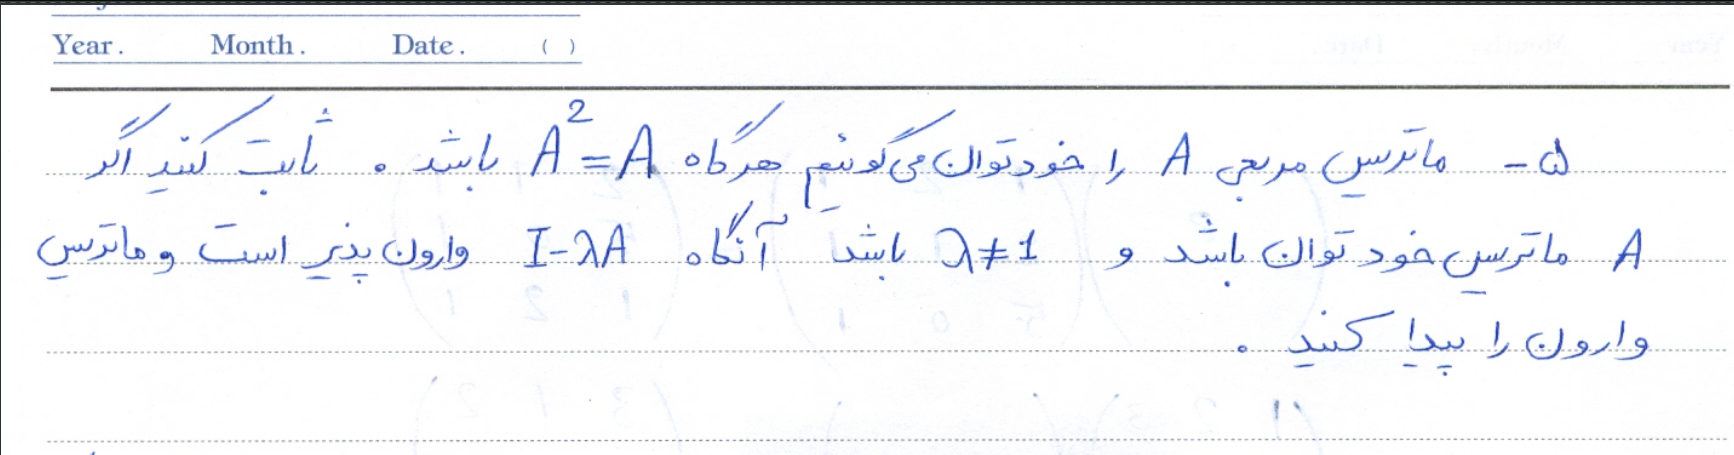 Year. Month. Date. ( )
۵- ماتریس مربعی A را خودتوان می‌گوئیم هرگاه A²=A باشد. ثابت کنید اگر
A ماتریس خودتوان باشد و λ≠1 باشد آنگاه I-λA وارون پذیر است و ماتریس
وارون را پیدا کنید.